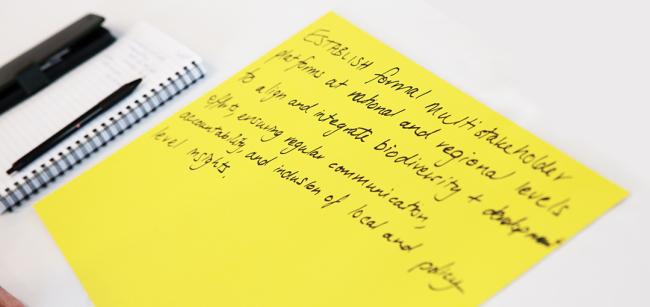 ESTABLISH formal multistakeholder
platforms at national and regional levels
to align and integrate biodiversity + development
efforts, ensuring regular communication,
accountability, and inclusion of local and policy
level insights.